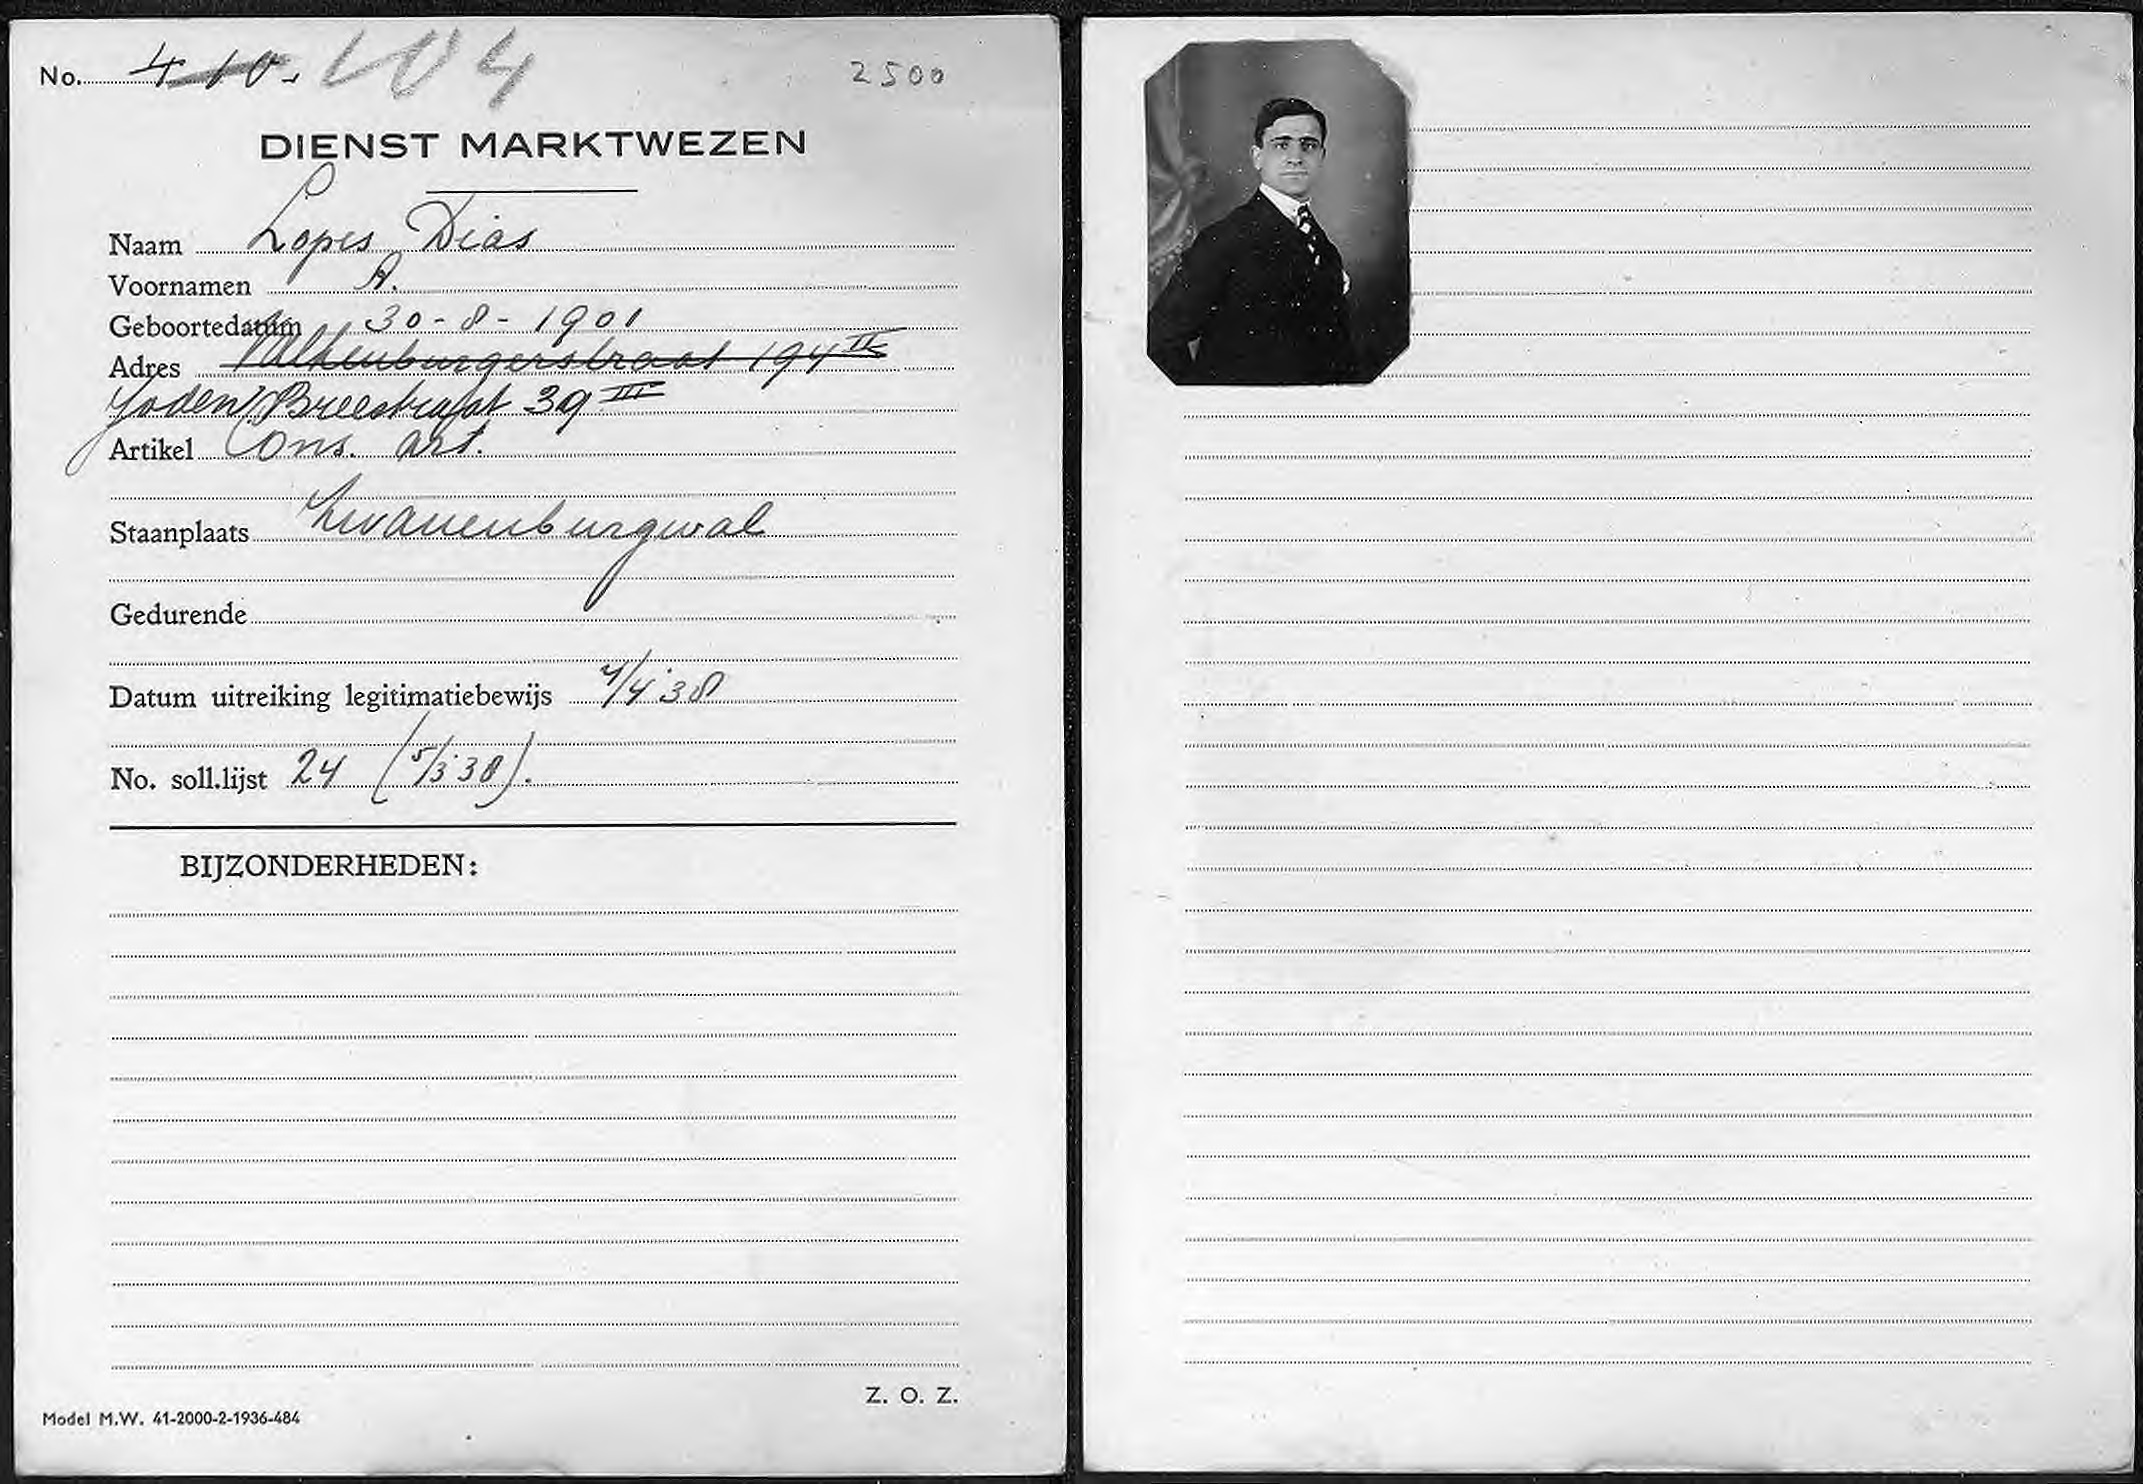 No. 410. 404
2500
DIENST MARKTWEZEN
Naam Lopes Dias
Voornamen A.
Geboortedatum 30-8-1901
Adres Valkenburgerstraat 194 II
Joden Breestraat 39 III
Artikel Cons. art.
Staanplaats Zwanenburgwal
Gedurende
Datum uitreiking legitimatiebewijs 4/4'38
No. soll.lijst 24 (5/3'38).
BIJZONDERHEDEN:
Z. O. Z.
Model M.W. 41-2000-2-1936-484